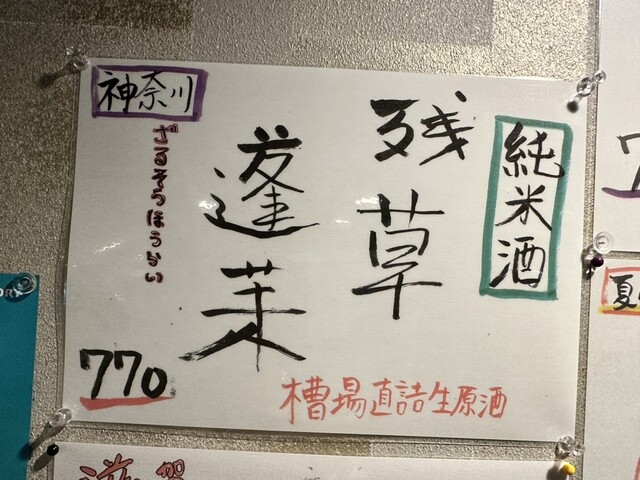 純米酒
残草
蓬莱
神奈川
ざるそうほうらい
槽場直詰生原酒
770
滋賀
夏